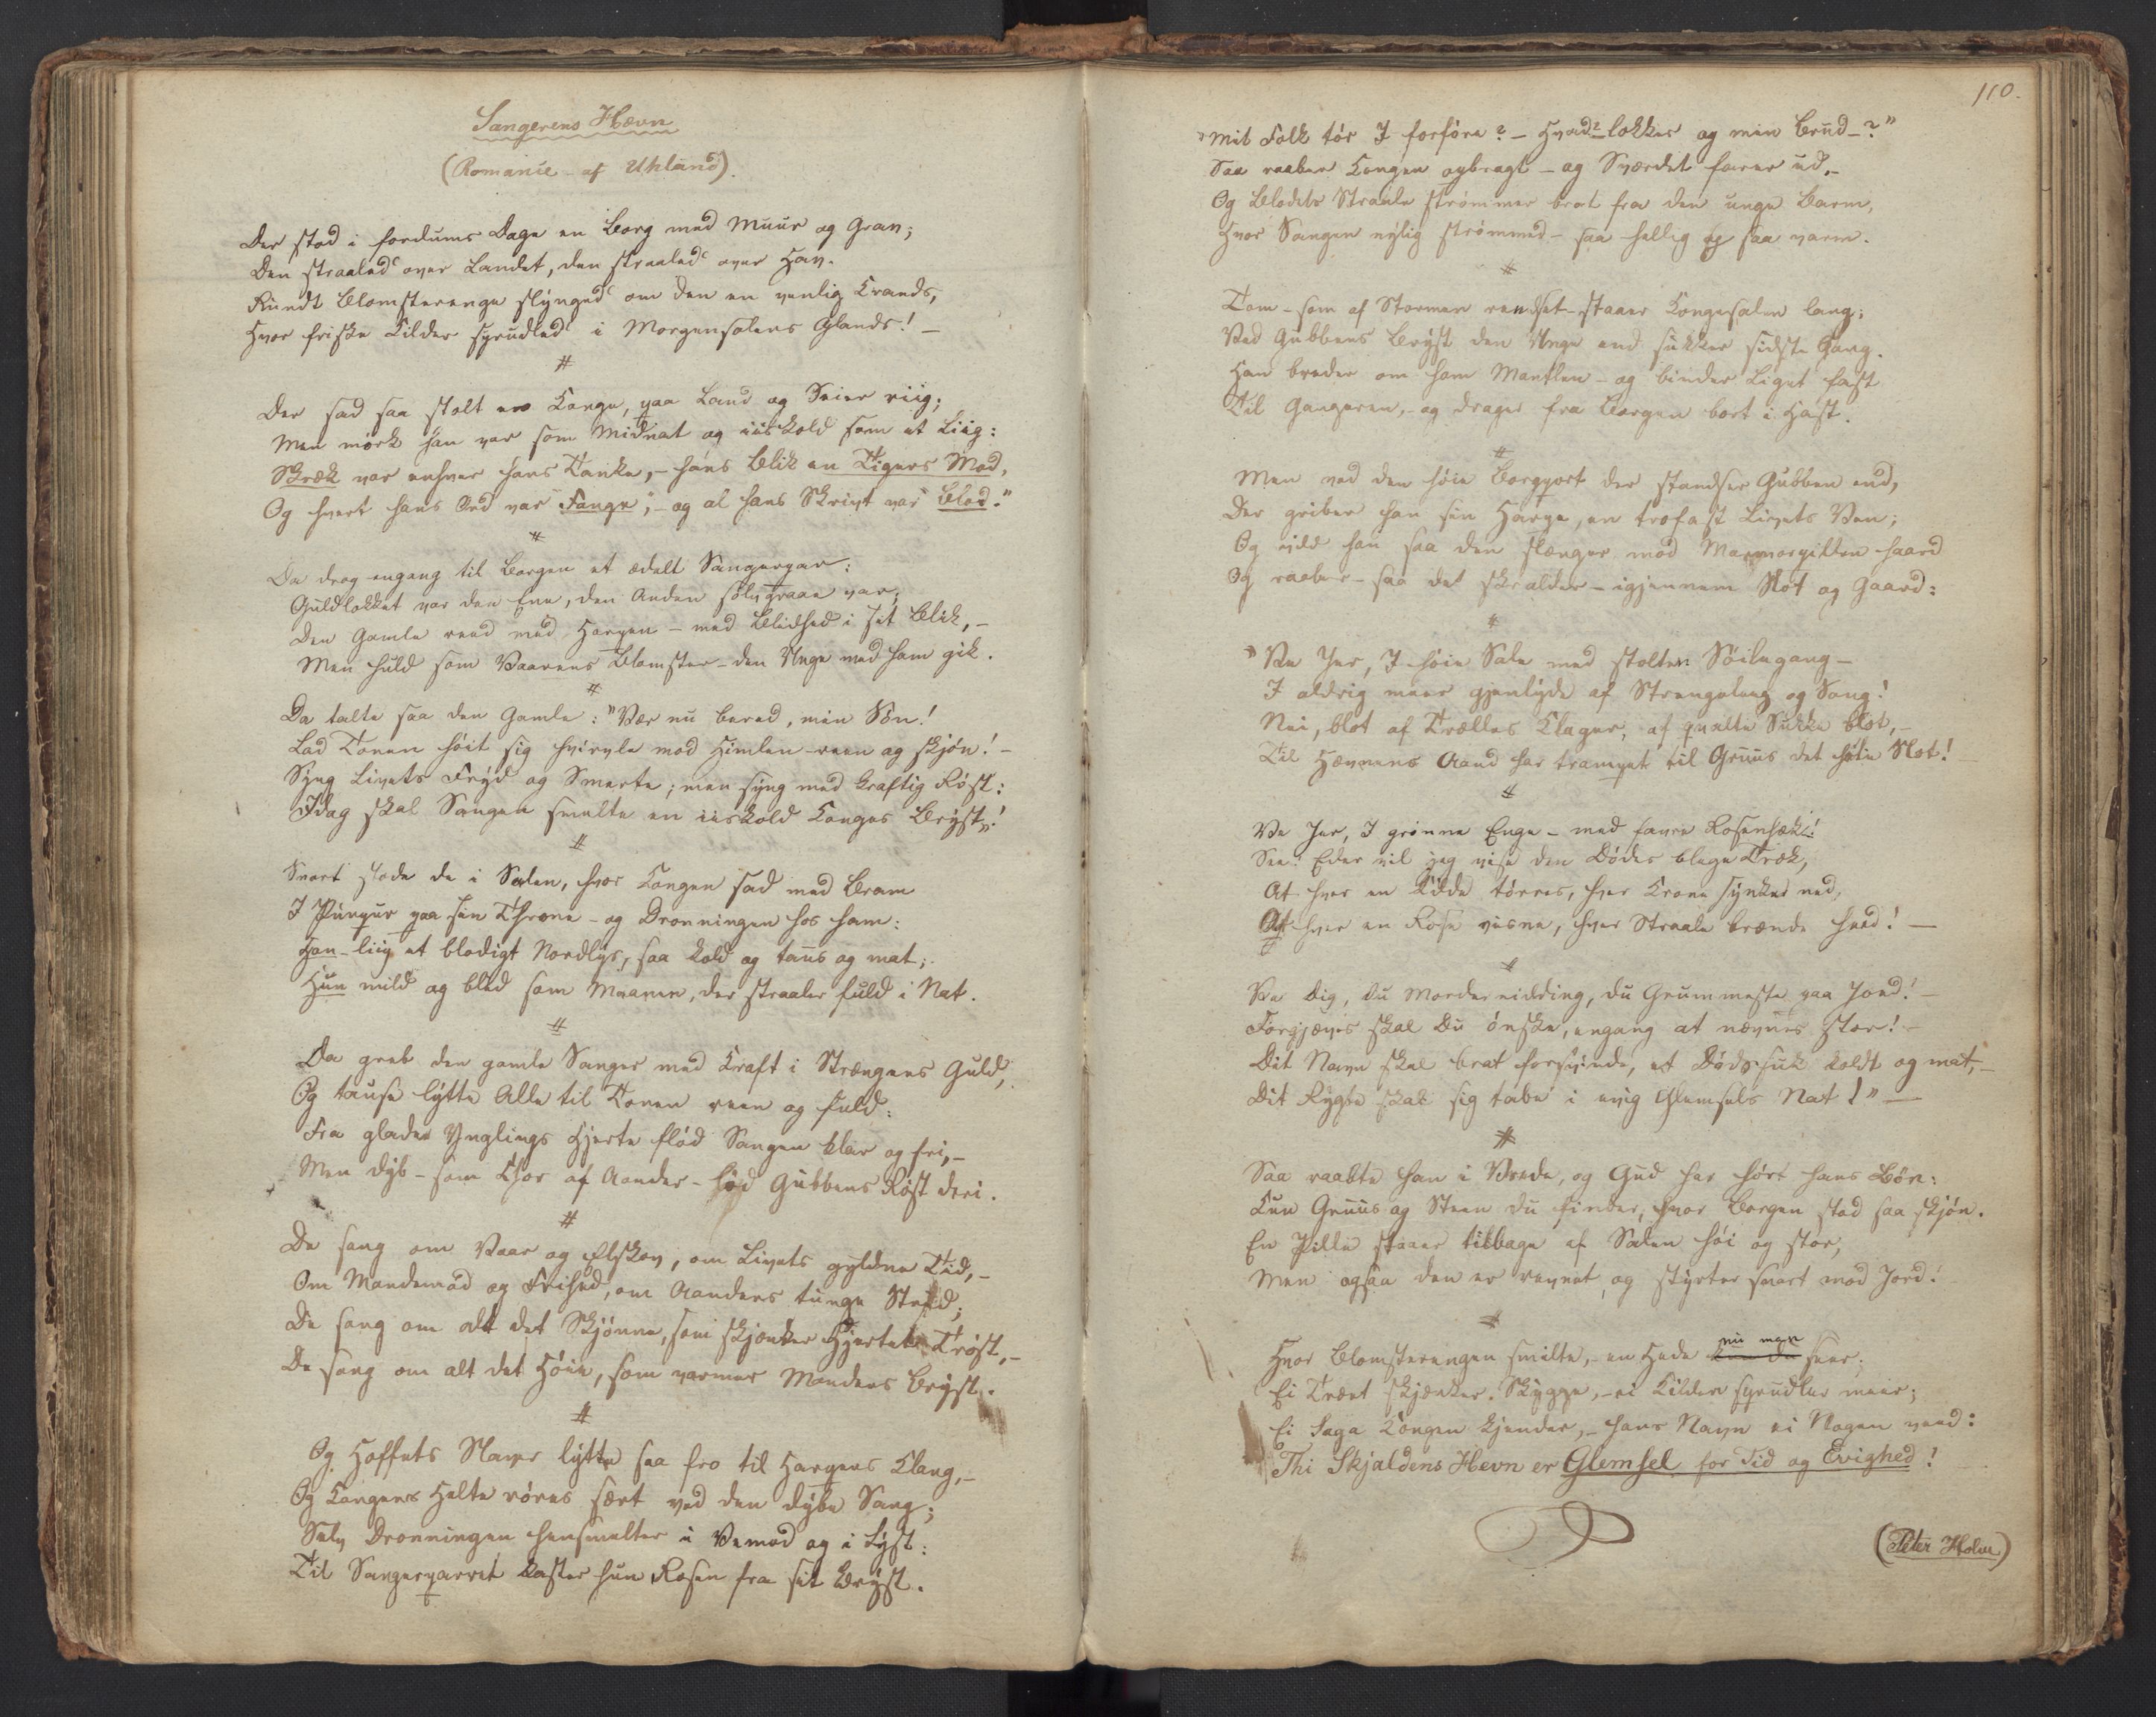 Sangerens Hævn
(Romanze af Uhland).
Der stod i fordums Dage en Borg med Muur og Grav;
Den straaled' over Landet, den straaled' over Hav.
Rundt Blomsterenge slynged' om den en venlig Krands,
Hvor friske Kilder sprudled' i Morgensolens Glands! –
#
Der sad saa stolt en Konge, paa Land og Seier riig;
Men mørk han var som Midnat og iiskold som et Liig:
Skræk var enhver hans Tanke, – hans Blik en Tigers Mod,
Og hvert hans Ord var "Fange", – og al hans Skrivt var "Blod".
#
Da drog engang til Borgen et ædelt Sangerpar:
Guldlokket var den Ene, den Anden sølvgraae var;
Den Gamle reed med Harpen – med Blidhed i sit Blik, –
Men huld som Vaarens Blomster – den Unge med ham gik.
#
Da talte saa den Gamle: "Vær nu bered, min Søn!
Lad Tonen høit sig hvirvle mod Himlen reen og skjøn! –
Syng Livets Fryd og Smerte; men syng med kraftig Røst:
Idag skal Sangen smelte en iiskold Konges Bryst!"
#
Snart stode de i Salen, hvor Kongen sad med Bram
I Purpur paa sin Throne – og Dronningen hos ham:
Han – liig et blodigt Nordlys, saa kold og taus og mat;
Hun mild og blid som Maanen, der straaler fuld i Nat.
#
Da greb den gamle Sanger med Kraft i Strængens Guld,
Og tause lytte Alle til Tonen reen og fuld:
Fra glade Ynglings Hjerte flød Sangen klar og fri, –
Men dyb – som Chor af Aander – lød Gubbens Røst deri.
#
De sang om Vaar og Elskov, om Livets gyldne Tid, –
Om Mandemod og Frihed, om Aandens tunge Strid;
De sang om alt det Skjønne, som skjænker Hjertet Trøst, –
De sang om alt det Høie, som varmer Mandens Bryst.
#
Og Hoffets Slaver lytte saa fro til Harpens Klang, –
Og Kongens Helte røres sært ved den dybe Sang;
Selv Dronningen hensmelter i Vemod og i Lyst:
Til Sangerparret kaster hun Rosen fra sit Bryst.
110.
"Mit Folk tør I forføre? – Hvad? – lokker og min Brud – ?"
Saa raaber Kongen opbragt – og Sværdet farer ud, –
Og Blodets Straale strømmer brat fra den unge Barm,
Hvor Sangen nylig strømmed – saa hellig og saa varm.
#
Tom – som af Stormen rendset – staaer Kongesalen lang;
Ved Gubbens Bryst den Unge end sukker sidste Gang.
Han breder om ham Mantlen – og binder Liget fast
Til Gangeren, – og drager fra Borgen bort i Hast.
#
Men ved den høie Borgport der standser Gubben end,
Der griber han sin Harpe, en trofast Livets Ven;
Og vild han saa den slænger mod Marmorpillen haard
Og raaber – saa det skralder – igjennem Slot og Gaard:
#
"Vee Jer, I høie Sale med stolten Søilegang –
I aldrig meer gjenlyde af Strengeleeg og Sang!
Nei, blot af Trælles Klager, af qvalte Sukke blot, –
Til Hævnens Aand har trampet til Gruus det høie Slot!
#
Ve Jer, I grønne Enge – med favre Rosenhæk!
See! Eder vil jeg vise den Dødes blege Træk,
At hver en Kilde tørres, hver Krone synker ned,
At hver en Rose visne, hver Straale brænde heed! –
#
Ve Dig, Du Mordernidding, du Grummeste paa Jord! –
Forgjæves skal Du ønske, engang at nævnes stor! –
Dit Navn skal brat forsvinde, et Dødssuk koldt og mat, –
Dit Rygte skal sig tabe i evig Glemsels Nat!" –
#
Saa raabte han i Vrede, og Gud har hørt hans Bøn:
Kun Gruus og Steen du finder, hvor Borgen stod saa skjøn.
En Pille staaer tilbage af Salen høi og stor,
Men ogsaa den er revnet, og styrter snart mod Jord!
#
Hvor Blomsterengen smilte, – en Hede nu man seer;
Ei Træet skjænker Skygge, – ei Kilden sprudler meer;
Ei Saga Kongen kjender, – hans Navn ei Nogen veed:
Thi Skjaldens Hevn er Glemsel for Tid og Evighed!
(Peter Holm)